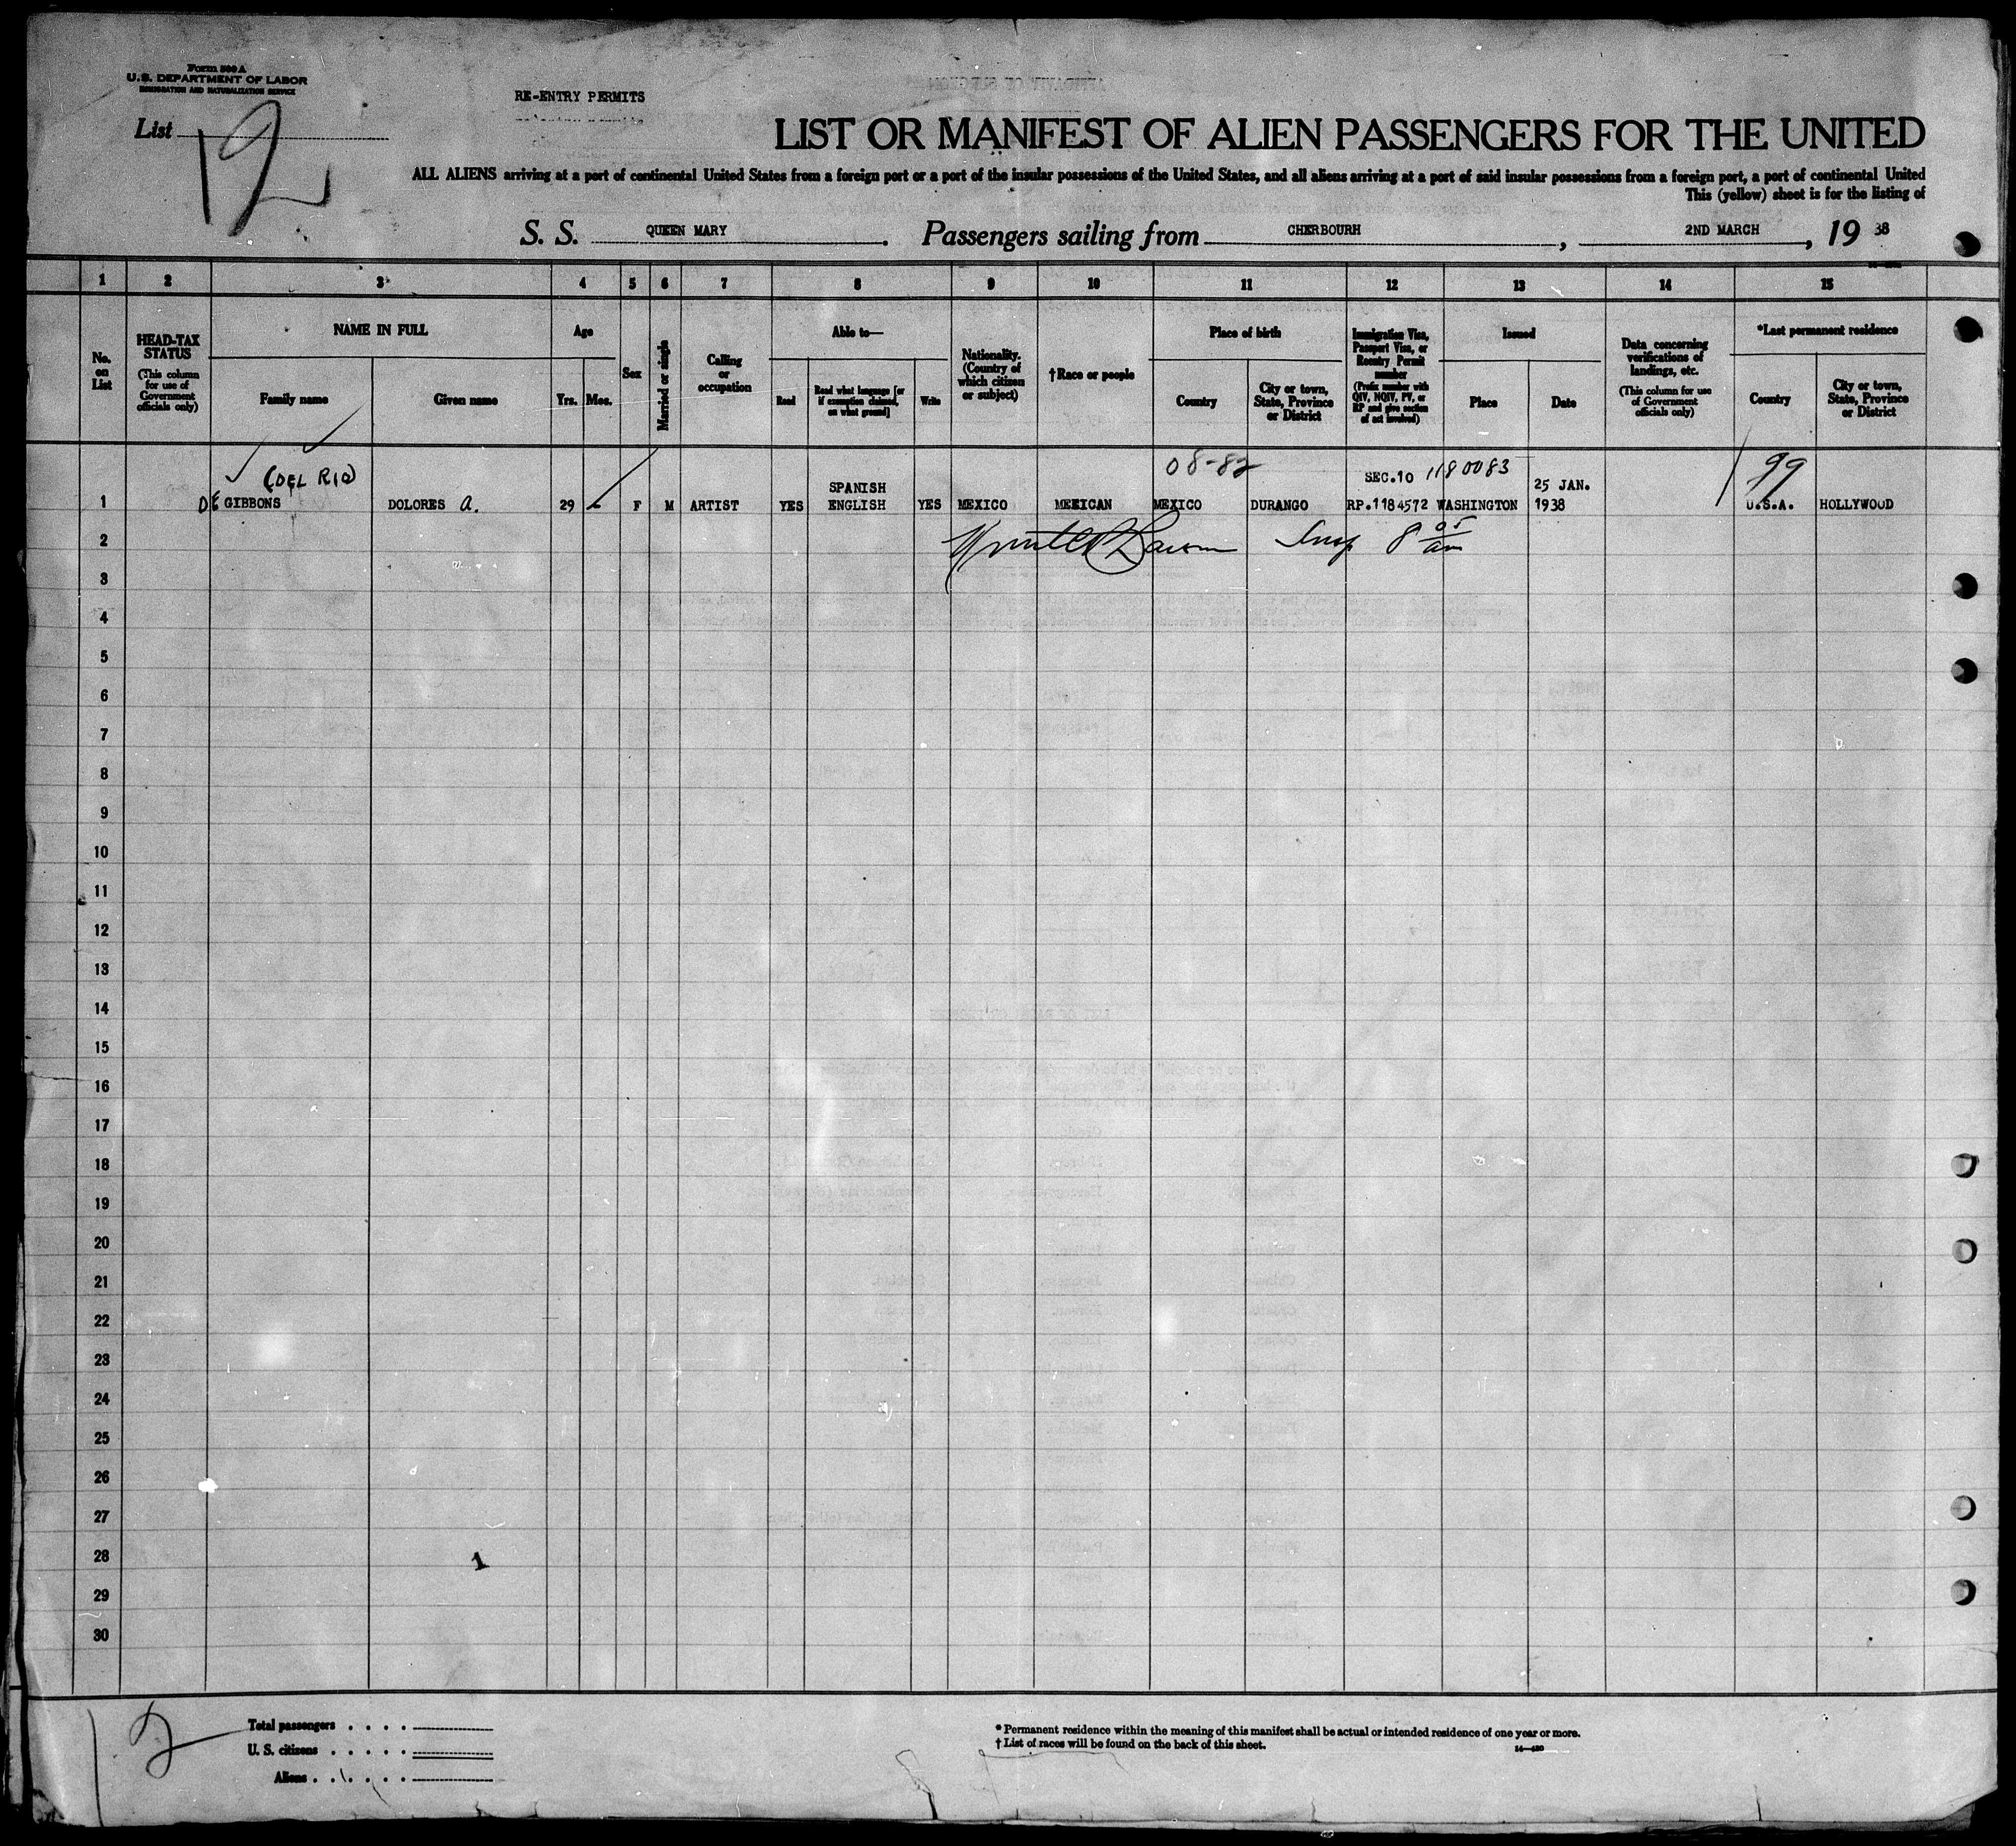 Form 500 A
U.S. DEPARTMENT OF LABOR
IMMIGRATION AND NATURALIZATION SERVICE
List 12
RE-ENTRY PERMITS
LIST OR MANIFEST OF ALIEN PASSENGERS FOR THE UNITED
ALL ALIENS arriving at a port of continental United States from a foreign port or a port of the insular possessions of the United States, and all aliens arriving at a port of said insular possessions from a foreign port, a port of continental United
This (yellow) sheet is for the listing of
S. S. QUEEN MARY. Passengers sailing from CHERBOURH, 2ND MARCH, 19 38
1 2 3 4 5 6 7 8 9 10 11 12 13 14 15
No. on List
HEAD-TAX STATUS
(This column for use of Government officials only)
NAME IN FULL
Family name
Given name
Age
Yrs. Mos.
Sex
Married or single
Calling or occupation
Able to—
Read
Read what language [or if exemption claimed, on what ground]
Write
Nationality. (Country of which citizen or subject)
†Race or people
Place of birth
Country
City or town, State, Province or District
Immigration Visa, Passport Visa, or Reentry Permit number
(Prefix number with QIV, NQIV, PV, or RP and give section of act involved)
Issued
Place
Date
Data concerning verifications of landings, etc.
(This column for use of Government officials only)
*Last permanent residence
Country
City or town, State, Province or District
(DEL RIO) 08-82 SEC.10 1180083 99
SPANISH 25 JAN.
1 DE GIBBONS DOLORES A. 29 F M ARTIST YES ENGLISH YES MEXICO MEXICAN MEXICO DURANGO RP.1184572 WASHINGTON 1938 U.S.A. HOLLYWOOD
2 Insp 8 05 am
3
4
5
6
7
8
9
10
11
12
13
14
15
16
17
18
19
20
21
22
23
24
25
26
27
28 1
29
30
12
Total passengers . . . .
U. S. citizens . . . . .
Aliens . . . . . .
* Permanent residence within the meaning of this manifest shall be actual or intended residence of one year or more.
† List of races will be found on the back of this sheet.
14—430